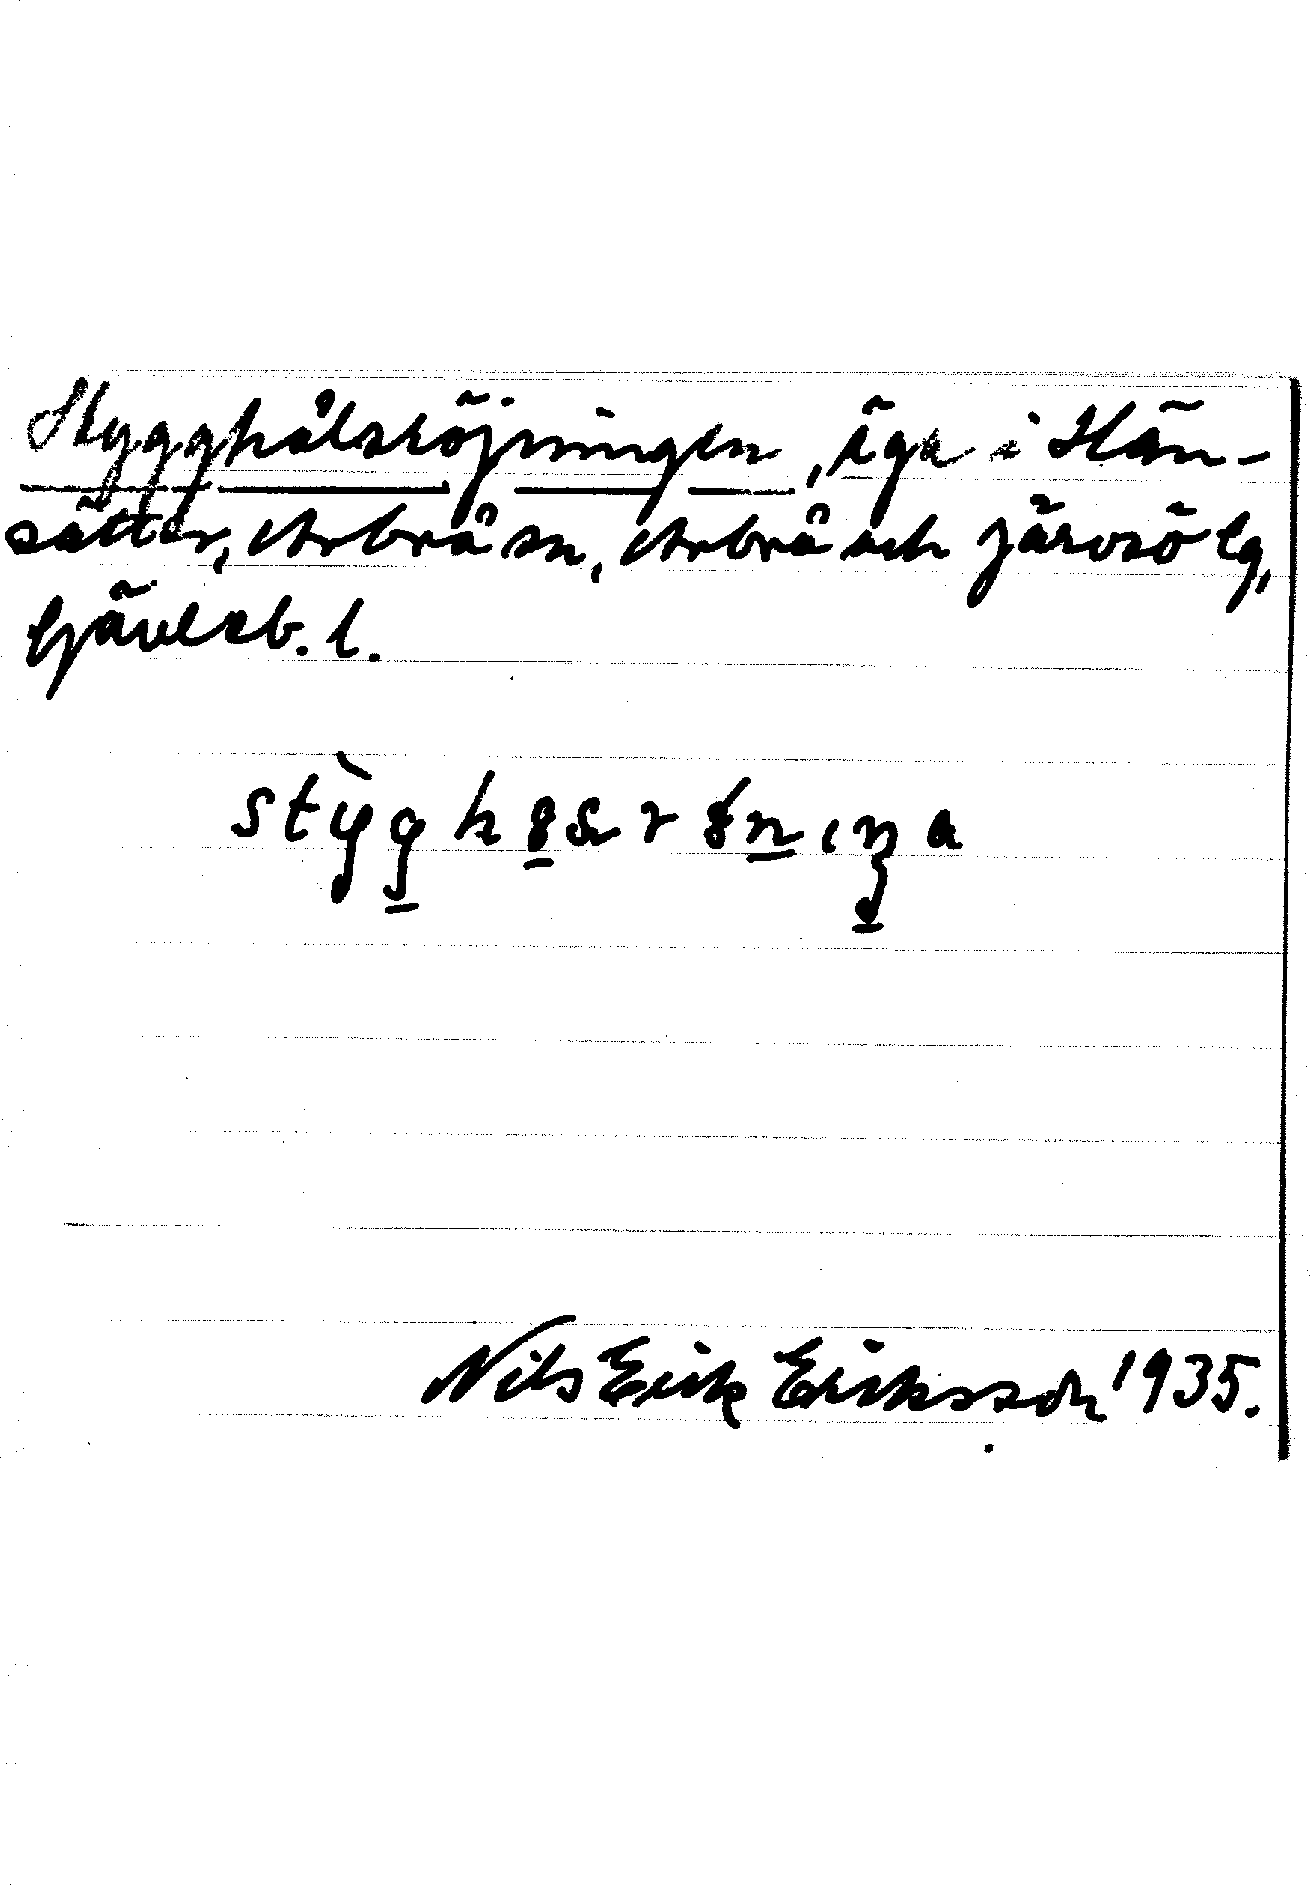 Stygghålsröjningen, äga i Hän-
sätter, Arbrå sn, Arbrå och Järvsö lg,
Gävleb. l.
Nils Erik Eriksson 1935.